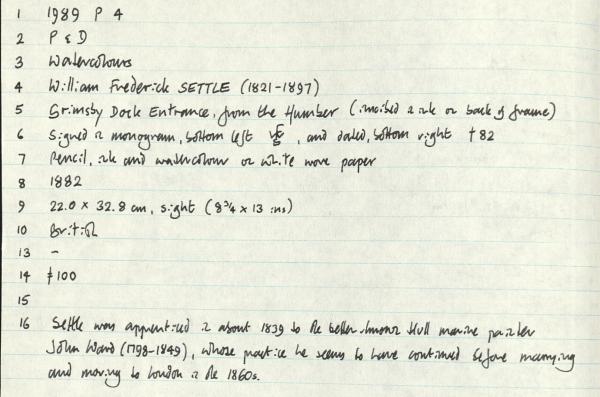 1 1989 P 4
2 P & D
3 Watercolours
4 William Frederick SETTLE (1821-1897)
5 Grimsby Dock Entrance, from the Humber (inscribed in ink on back of frame)
6 Signed in monogram, bottom left, and dated, bottom right 82
7 Pencil, ink and watercolour on white wove paper
8 1882
9 22.0 × 32.8 cm, sight (8¾ × 13 ins)
10 British
13 -
14 £100
15
16 Settle was apprenticed in about 1839 to the better-known Hull marine painter
John Ward (1798-1849), whose practice he seems to have continued before marrying
and moving to London in the 1860s.